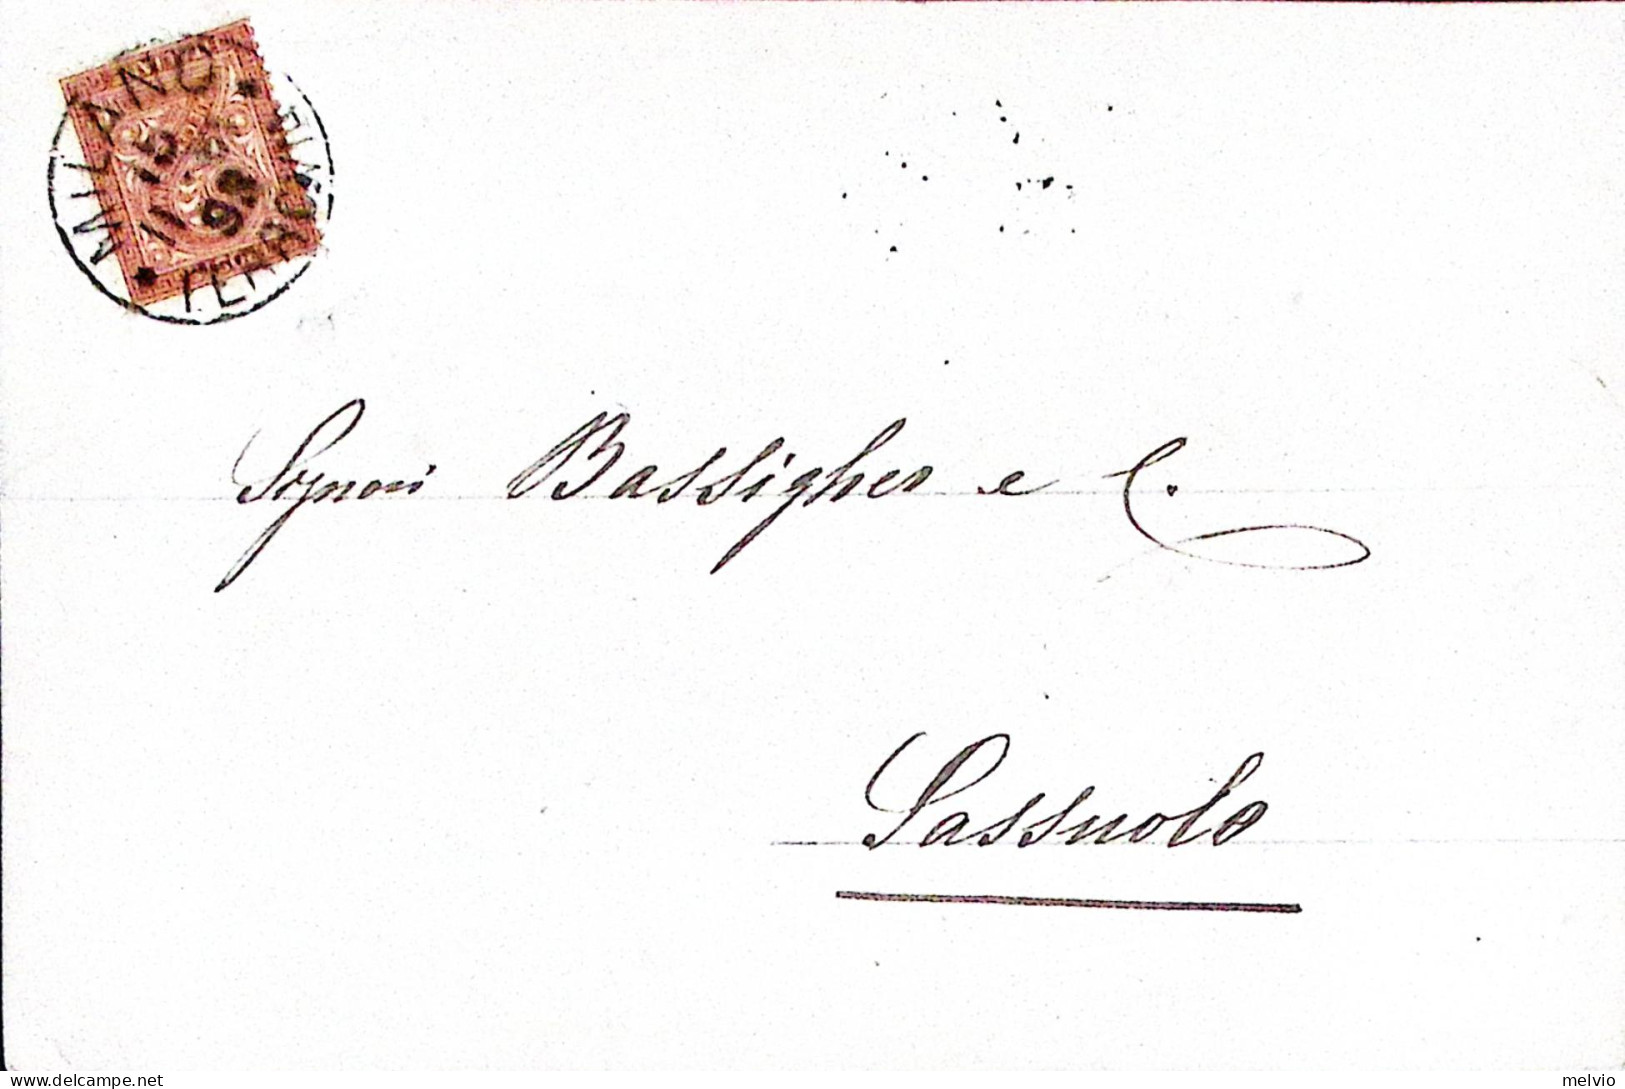 MILANO
FERROVIA
Signori Bassigher e C.
Sassuolo
delcampe.net
melvio